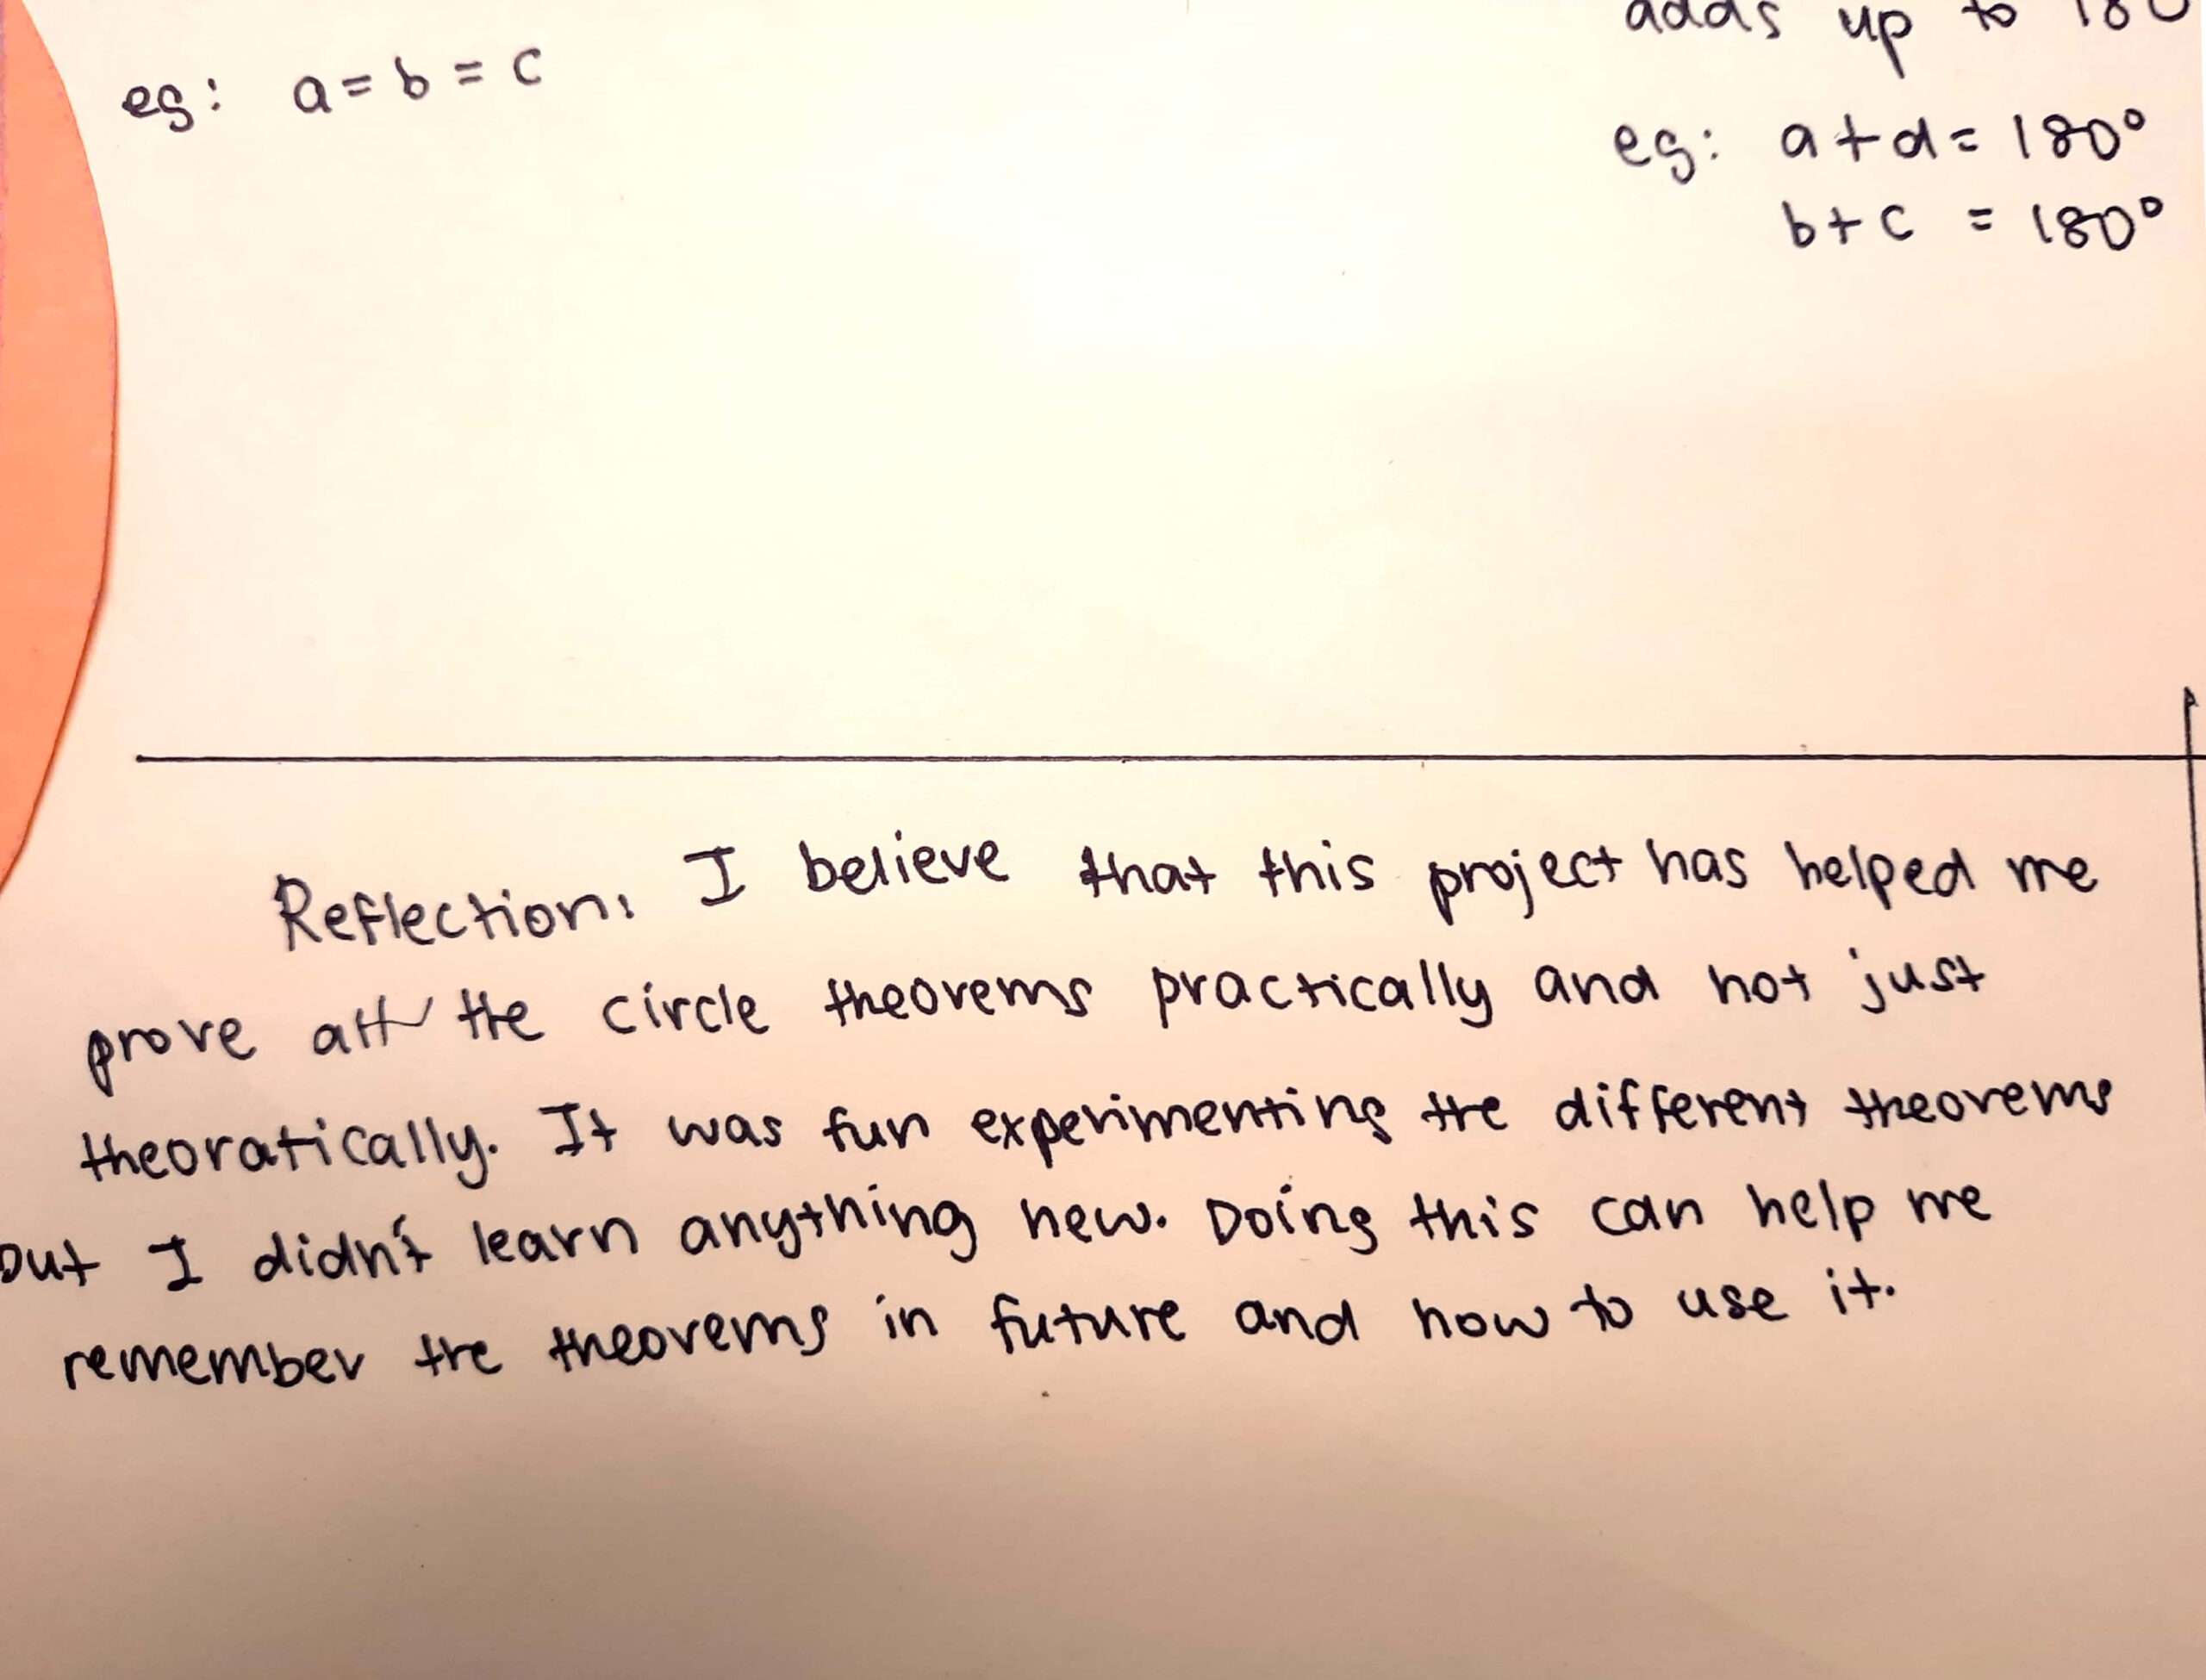 eg: a = b = c
adds up to 180
eg: a + d = 180°
b + c = 180°
Reflection: I believe that this project has helped me
prove all the circle theorems practically and not just
theoratically. It was fun experimenting the different theorems
but I didn't learn anything new. Doing this can help me
remember the theorems in future and how to use it.